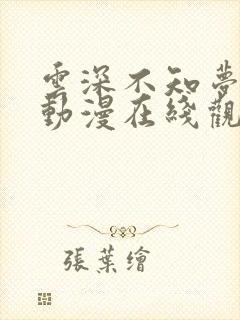 雲深不知夢
動漫在綫觀
張葉繪